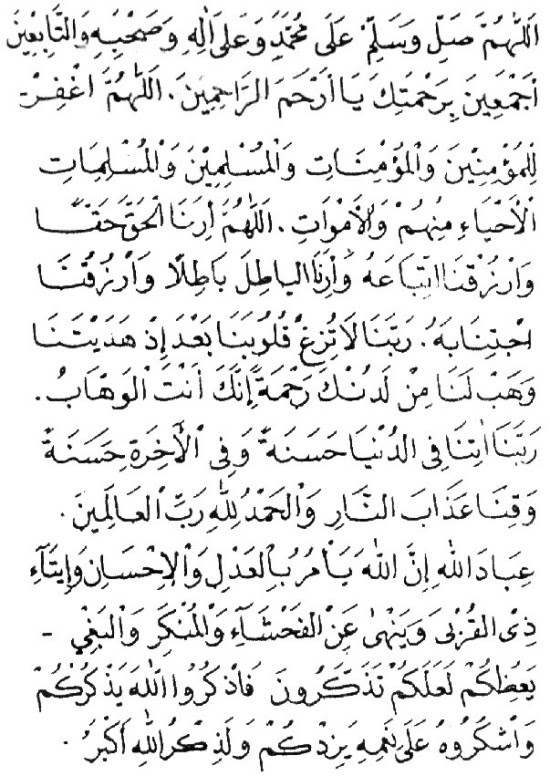 اَللّٰهُمَّ صَلِّ وَسَلِّمْ عَلَى مُحَمَّدٍ وَعَلَى اٰلِهِ وَصَحْبِهِ وَالتَّابِعِيْنَ
اَجْمَعِيْنَ بِرَحْمَتِكَ يَا اَرْحَمَ الرَّاحِمِيْنَ. اَللّٰهُمَّ اغْفِرْ
لِلْمُؤْمِنِيْنَ وَالْمُؤْمِنَاتِ وَالْمُسْلِمِيْنَ وَالْمُسْلِمَاتِ
اَلْاَحْيَاءِ مِنْهُمْ وَالْاَمْوَاتِ. اَللّٰهُمَّ اَرِنَا الْحَقَّ حَقًّا
وَارْزُقْنَا اتِّبَاعَهُ وَاَرِنَا الْبَاطِلَ بَاطِلًا وَارْزُقْنَا
اجْتِنَابَهُ. رَبَّنَا لَا تُزِغْ قُلُوْبَنَا بَعْدَ اِذْ هَدَيْتَنَا
وَهَبْ لَنَا مِنْ لَدُنْكَ رَحْمَةً اِنَّكَ اَنْتَ الْوَهَّابُ.
رَبَّنَا اٰتِنَا فِى الدُّنْيَا حَسَنَةً وَفِى الْاٰخِرَةِ حَسَنَةً
وَقِنَا عَذَابَ النَّارِ وَالْحَمْدُ لِلّٰهِ رَبِّ الْعَالَمِيْنَ.
عِبَادَ اللّٰهِ اِنَّ اللّٰهَ يَأْمُرُ بِالْعَدْلِ وَالْاِحْسَانِ وَاِيْتَآءِ
ذِى الْقُرْبٰى وَيَنْهٰى عَنِ الْفَحْشَآءِ وَالْمُنْكَرِ وَالْبَغْيِ -
يَعِظُكُمْ لَعَلَّكُمْ تَذَكَّرُوْنَ فَاذْكُرُوا اللّٰهَ يَذْكُرْكُمْ
وَاشْكُرُوْهُ عَلَى نِعَمِهِ يَزِدْكُمْ وَلَذِكْرُ اللّٰهِ اَكْبَرُ.